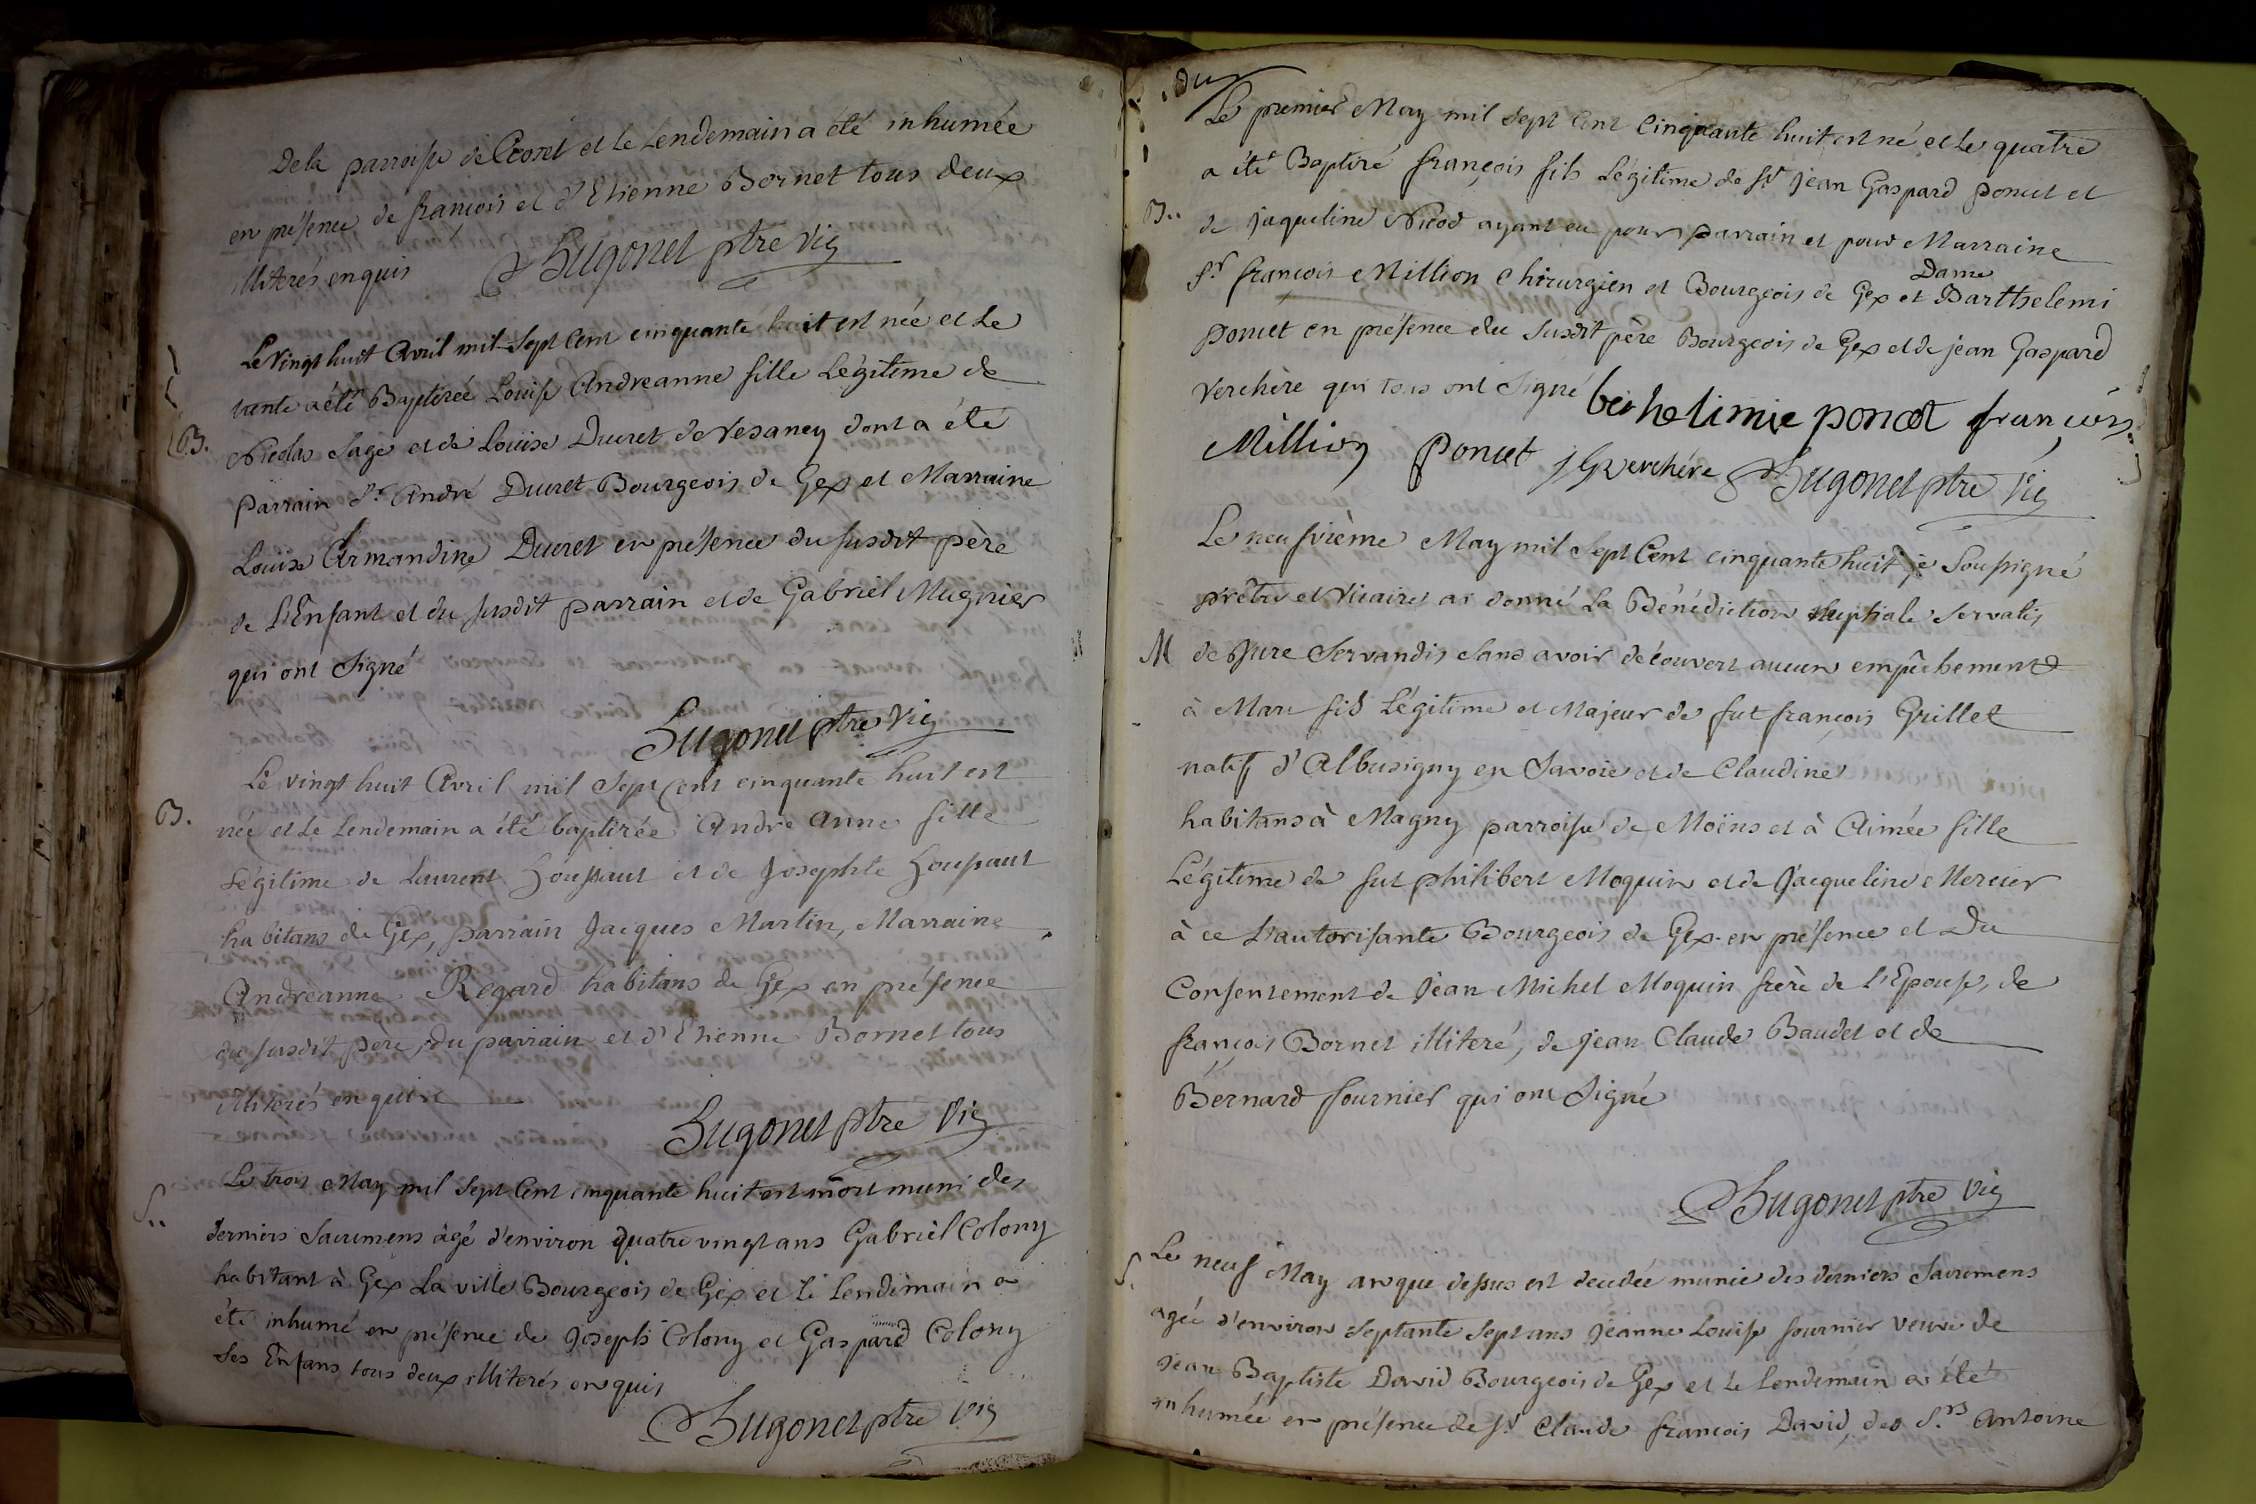 De la parroisse de Crozet et le Lendemain a été inhumée
en présence de françois et d'Etienne Bornet tous deux
illiterés enquis Hugonet ptre Vic
Le Vingt huit Avril mil Sept Cent cinquante huit est née et Le
trente a été Baptizée Louise Andreanne fille Légitime de
B. Nicolas Sage et de Loüise Ducret de Vesancy dont a été
Parrain Sr André Ducret Bourgeois de Gex et Marraine
Louise Armandine Ducret en présence du susdit père
de L'Enfant et du susdit parrain et de Gabriel Mugnier
qui ont Signé
Hugonet ptre Vic
Le vingt huit Avril mil Sept Cent cinquante huit est
B. née et Le Lendemain a été baptizée Andre Anne fille
Légitime de Laurent et de Josephte
habitans de Gex, parrain Jacques Martin, Marraine
Andreanne Regard habitans de Gex en présence
du susdit père, du parrain et d'Etienne Bornet tous
illiterés enquis
Hugonet ptre Vic
S.. Le trois May mil Sept Cent cinquante huit est mort muni des
derniers Sacremens àgé d'environ quatre vingt ans Gabriel Colony
habitant à Gex La ville Bourgeois de Gex et le Lendemain a
été inhumé en présence de Joseph Colony et Gaspard Colony
Ses Enfans tous deux illiterés enquis
Hugonet ptre Vic
Du
Le premier May mil Sept Cent Cinquante huit est né et Le quatre
a été Baptizé françois fils Légitime de Sr Jean Gaspard poncet et
B.. de Jaqueline Nicod ayant eu pour parrain et pour Marraine
Sr françois Million Chirurgien et Bourgeois de Gex et Dame Barthelemi
poncet en présence du Susdit père Bourgeois de Gex et de jean Gaspard
Verchère qui tous ont Signé berhelimie poncet françois
Million Poncet J G verchére Hugonet ptre Vic
Le neufvième May mil Sept Cent cinquante huit je Soussigné
prêtre et Vicaire ai donné La Bénédiction Nuptiale Servatis
M de Jure Servandis Sans avoir découvert aucun empêchement
à Marc fils Légitime et Majeur de fut françois Grillet
natif d'Albusigny en Savoie et de Claudine
habitans à Magny parroisse de Moëns et à Aimée fille
Légitime de fut philibert Moquin et de Jacqueline Mercier
à ce L'autorisante Bourgeois de Gex en présence et Du
Consentement de Jean Michel Moquin frère de L'Epouse, de
françois Bornet illiteré, de Jean Claude Baudet et de
Bernard fournier qui ont Signé
Hugonet ptre Vic
S. Le neuf May an que dessus est decedée munie des derniers Sacremens
agée d'environ Septante Sept ans Jeanne Louise fournier veuve de
Jean Baptiste David Bourgeois de Gex et Le Lendemain a été
inhumée en présence de Sr Claude françois David, des S.rs Antoine